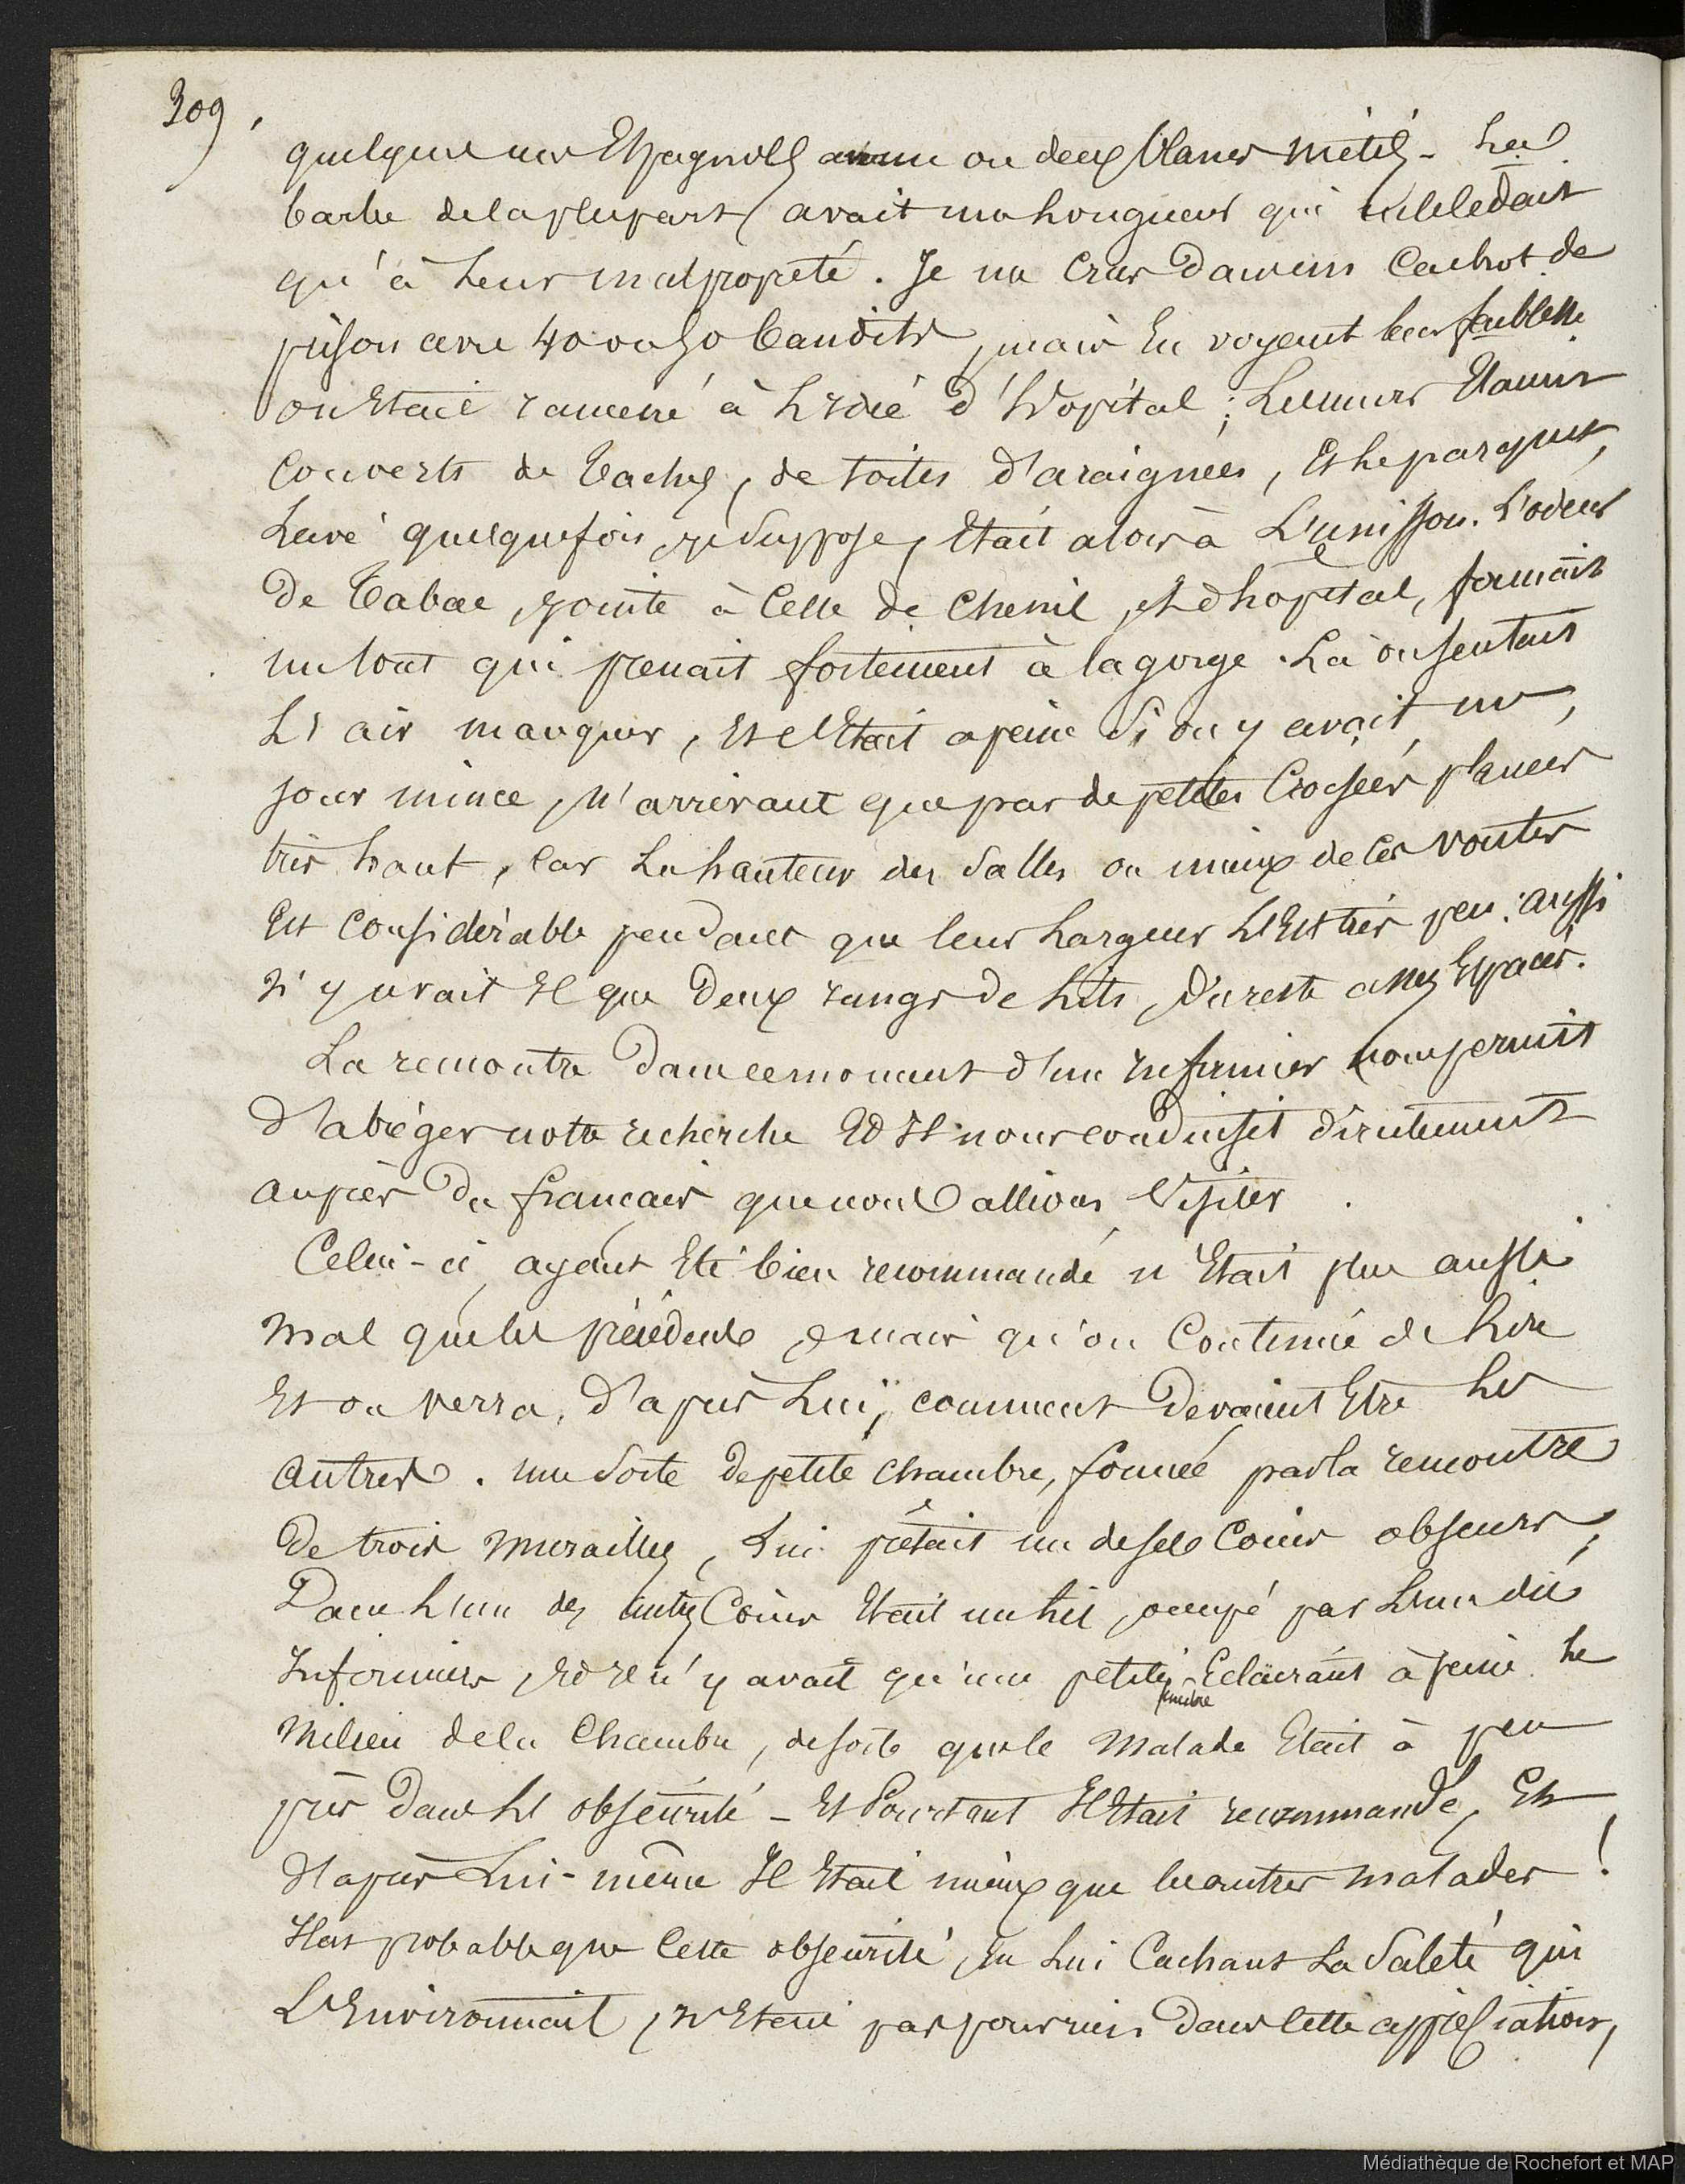 309,
quelques uns Espagnols un ou deux blancs métis - La
barbe de la plupart, avait une longueur qui ne le cédait
qu'à leur malpropreté. Je me crus dans un cachot de
prison avec 40 ou 50 bandits, mais en voyant leur faiblesse
on Etait ramené à L'idée d'hôpital; Les murs Etaient
couverts de taches, de toiles d'araignées, Et le parquet,
Lavé quelquefois, je suppose, Etait alors à L'unisson. L'odeur
de tabac, jointe à celle de chenil, et d'hopital, formait
un tout qui prenait fortement à la gorge. Là on sentait
L'air manquer, Et c'Etait a peine si on y avait un,
jour mince, N'arrivant que par de petites croisées placées
très haut, car La hauteur des salles ou mieux de ces voutes
Est considérable pendant que leur Largeur L'Est très peu: aussi
N'y avait Il que deux rangs de Lits, Du reste assez Espacés.
La rencontre dans ce moment d'un infirmier nous permit
d'abréger notre recherche Et Il nous conduisit directement
auprès du français que nous allions visiter.
Celui-ci, ayant Eté bien recommandé n'Etait plus aussi
mal que les précédents, mais qu'on continue de Lire
Et on verra, d'après Lui, comment devaient Etre Les
autres. une sorte de petite chambre, formée par la rencontre
de trois murailles, Lui prêtait un de ses coins obscurs,
Dans L'un des autres coins Etait un Lit, occupé par L'un des
Infirmiers, Et Il n'y avait qu'une petite Eclairant à peine Le
fenêtre
milieu de la chambre, de sorte que le malade Etait à peu
près dans L'obscurité - Et Pourtant Il Etait recommandé, Et
d'après Lui-même Il Etait mieux que les autres malades!
Il est probable que cette obscurité, en Lui cachant La saleté qui
L'Environnait, N'Etait pas pour rien dans cette appréciation,
Médiathèque de Rochefort et MAP